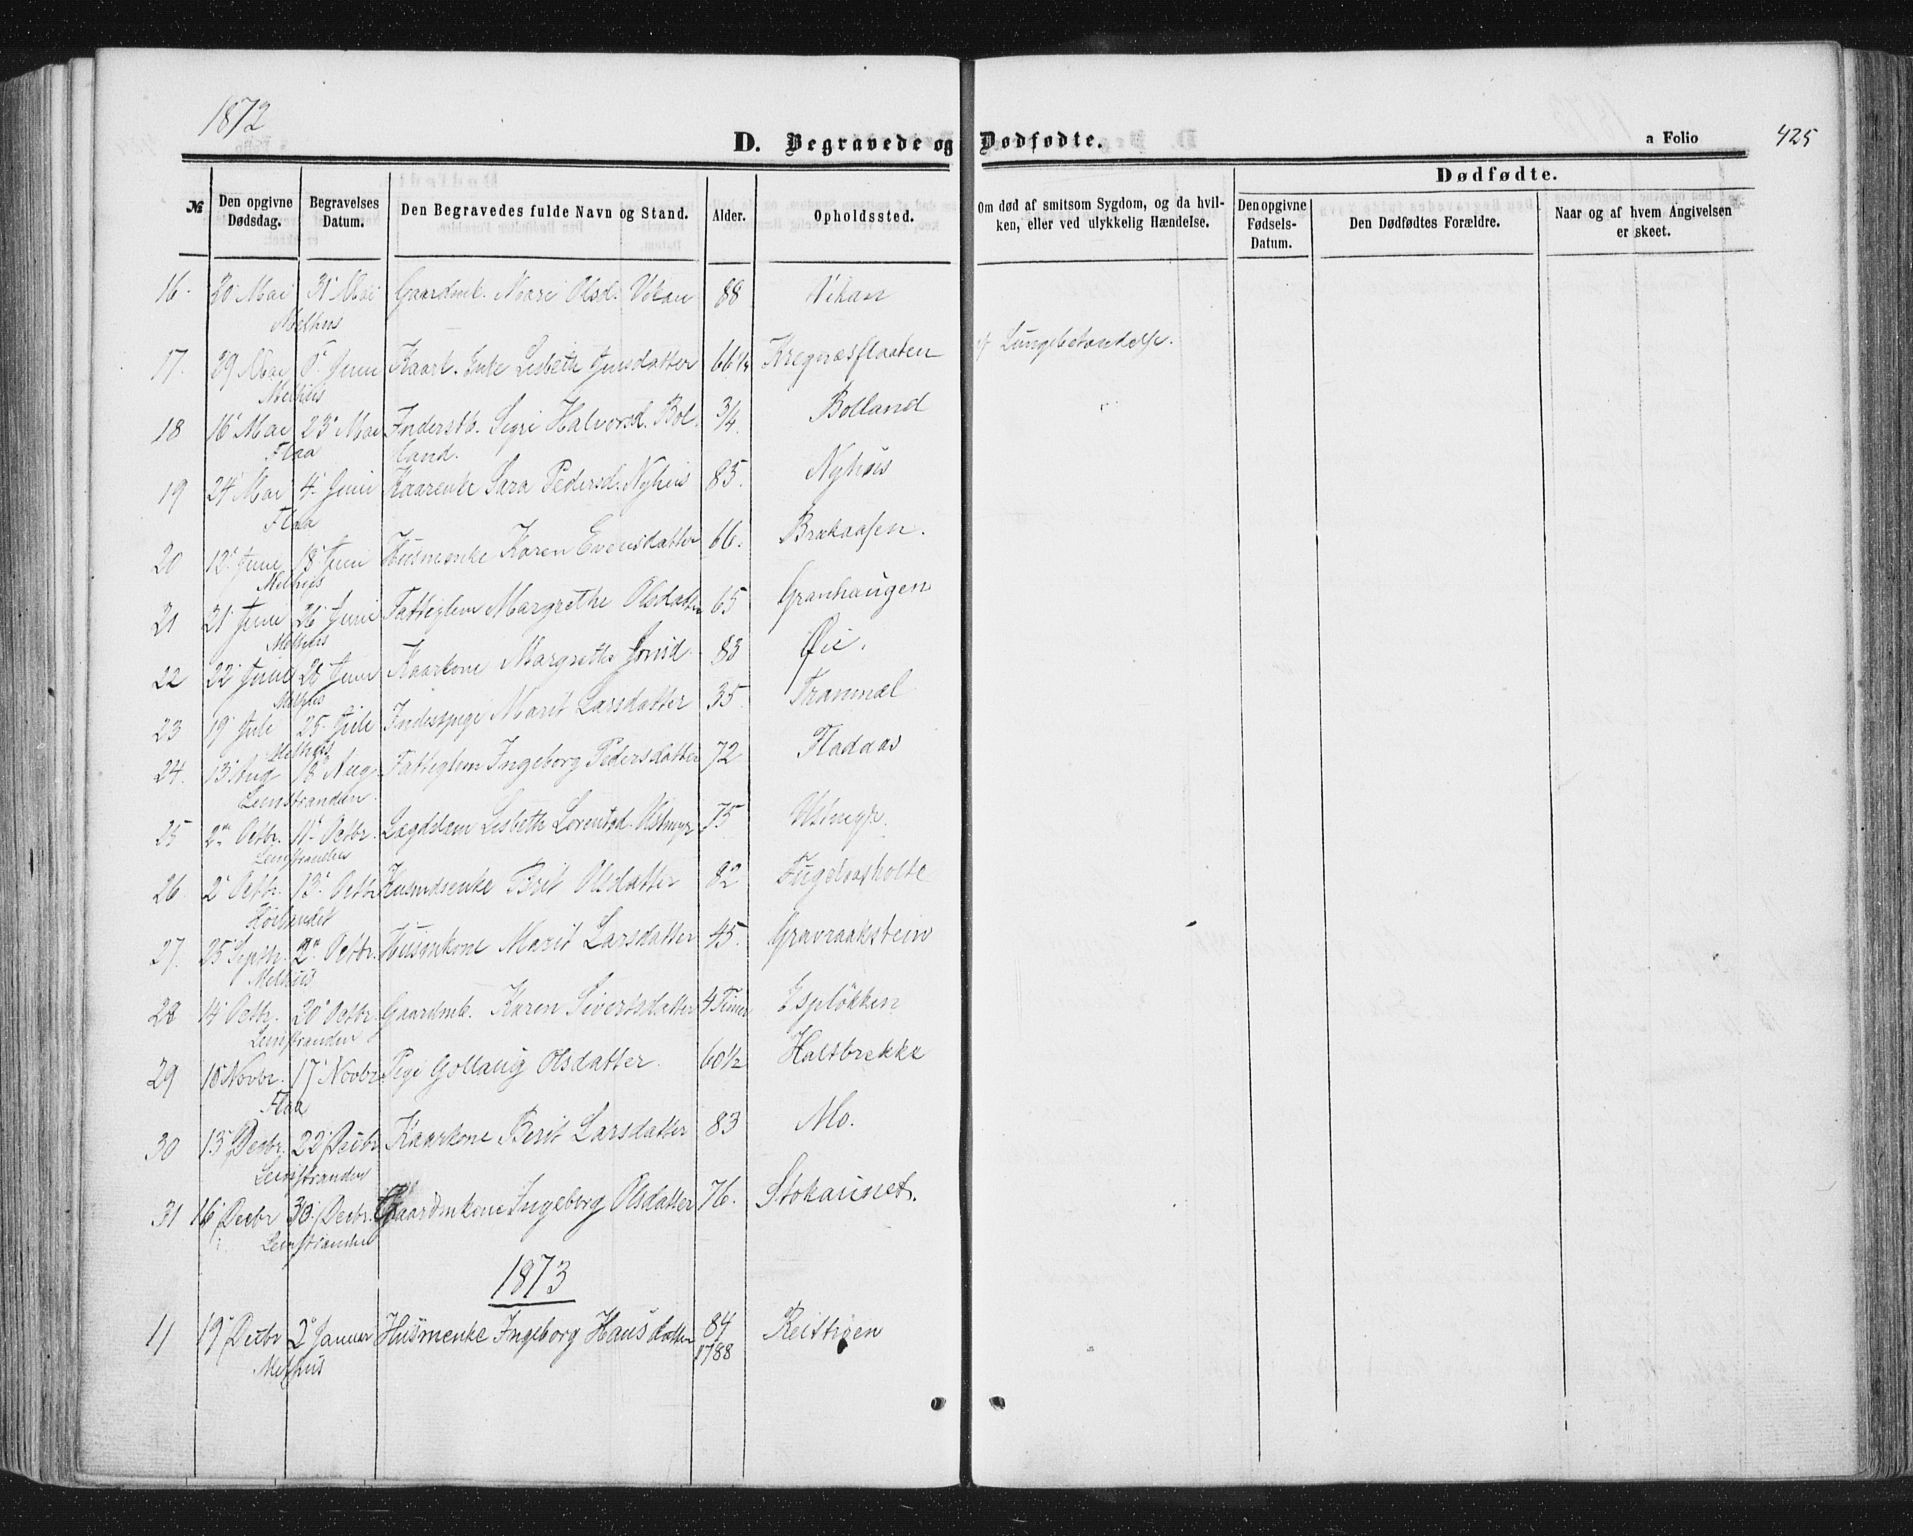 1872
D. Begravede og Dødfødte.
a Folio 425
Dødfødte.
№ Den opgivne Dødsdag. Begravelses Datum. Den Begravedes fulde Navn og Stand. Alder. Opholdssted. Om død af smitsom Sygdom, og da hvilken, eller ved ulykkelig Hændelse. Den opgivne Fødsels-Datum. Den Dødfødtes Forældre. Naar og af hvem Angivelsen er skeet.
16. 30 Mai 31 Mai Gaardmk. Mari Olsd. Vikan 88 Vikan
Melhus
17. 29 Mai Juni Kaarl. Enke Lisbeth Jensdatter 66½ Kregnæsflaaten Lungebetændelse.
Melhus
18 16 Mai 23 Mai Inderstb. Sigri Halvorsd. Bol- ¾. Bolland
Flaa land.
19 24 Mai 4 Juni Kaarenke Sara Pedersd. Nyhus 85. Nyhus
Flaa
20 12 Juni 18 Juni Husmenke Karen Evensdatter 66. Brækaasen.
Melhus
21 21 Juni 26 Juni Fattiglem Margrethe Olsdatter 65 Granhaugen
Melhus
22 22 Juni 26 Juni Kaarkone Margrethe 83 Øie.
Melhus
23 19 Juli 25 Juli Inderstpige Marit Larsdatter 35. Tranmæl
Melhus
24. 13 Aug 18 Aug Fattiglem Ingeborg Pedersdatter 72 Fladaas
Leinstranden.
25 2 Octbr. 11 Octbr. Lægdslem Lisbeth Lorentsd. Østmyr 75
Leinstranden
26. 2 Octbr. 13. Octbr Husmdsenke Brit Olsdatter 82 Fuglaasholte
27. 25 Septbr. 2 Octbr. Husmkone Marit Larsdatter 45. Gravraakstein
Melhus
28 14 Octbr. 20 Octbr. Gaardmb. Karen Sivertsdatter 4 Timer Espløkken
Leinstranden
29 10 Novbr. 17 Novbr Pige Gollaug Olsdatter. 60½ Haltbrekke
Flaa
30 13 Decbr. 22 Decbr Kaarkone Berit Larsdatter 83 Mo.
Leinstranden
31 16 Decbr 30. Decbr. Gaardmkone Ingeborg Olsdatter 76. Stokaunet.
Leinstranden
1873
11 19 Decbr 2 Januar Husmenke Ingeborg Hansdatter 84 Reitstigen
Melhus 1788